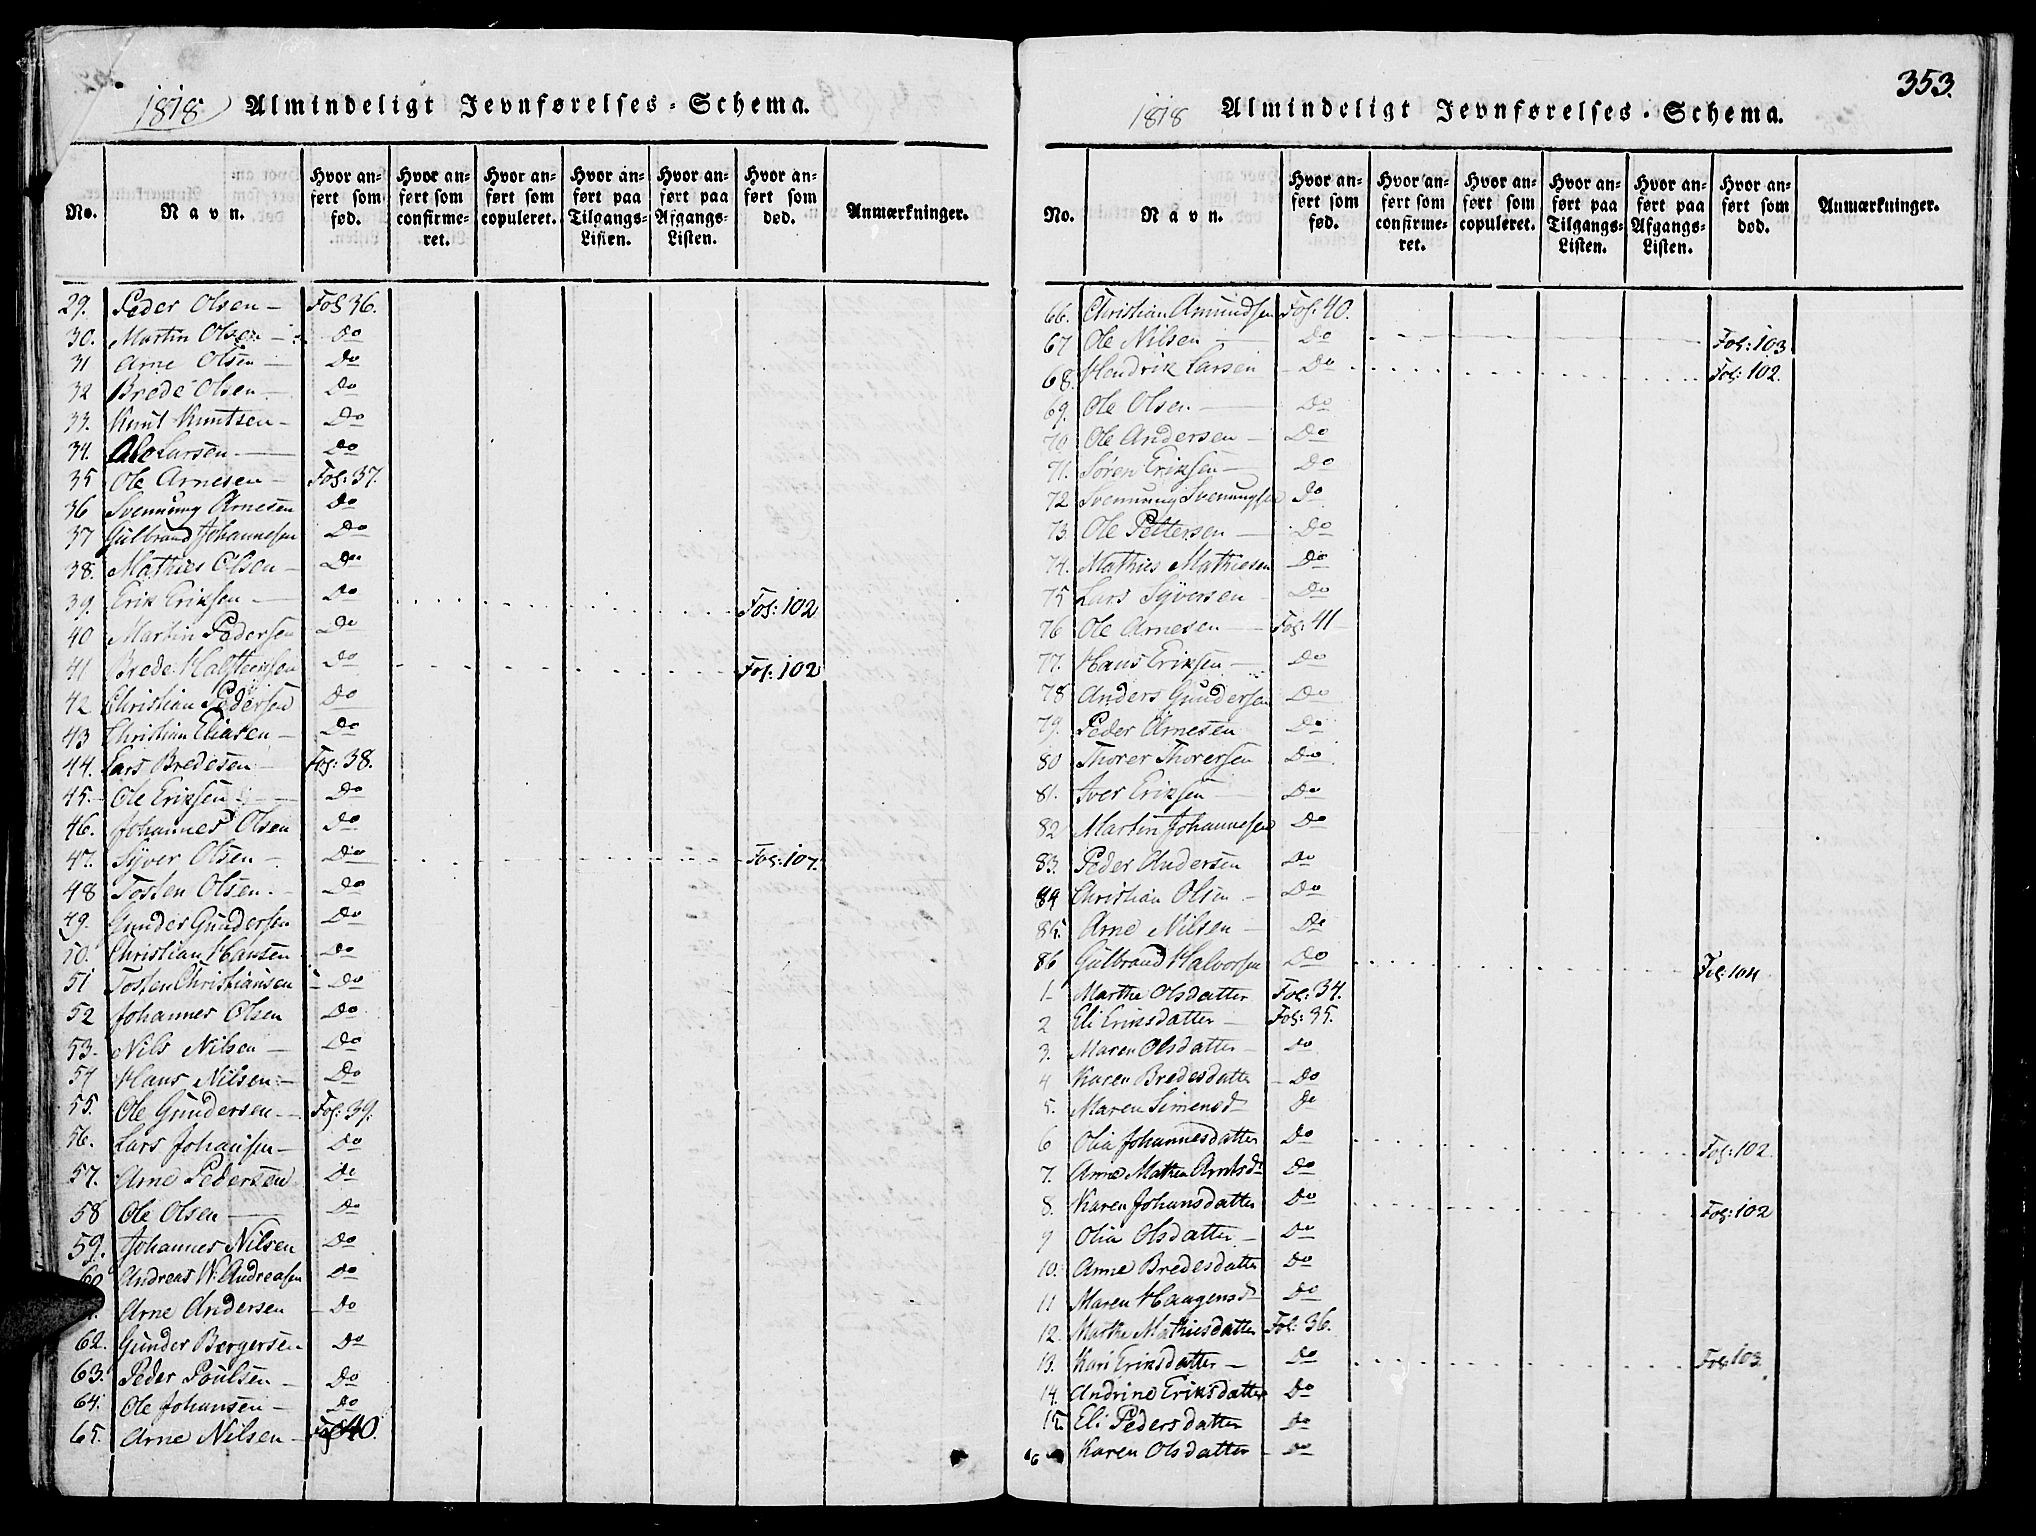 1818 Almindeligt Jevnførelses-Schema.
No. Navn. Hvor anført som fød. Hvor anført som confirmeret. Hvor anført som copuleret. Hvor anført paa Tilgangs-Listen. Hvor anført paa Afgangs-Listen. Hvor anført som død. Anmærkninger.
29. Peder Olsen – Fol 36.
30. Martin Olsen – Do
31 Arne Olsen – Do
32 Brede Olsen – Do
33. Knut Knutsen – Do
34. Ole Larsen – Do
35 Ole Arnesen – Fol: 37.
36 Svennung Arnesen Do
37 Gulbrand Johannesen Do
38. Mathies Olsen – Do
39. Erik Eriksen – Do Fol: 102
40 Martin Pedersen Do
41 Brede Halsteensen Do Fol: 102
42 Christian Pedersen Do
43 Christian Eliasen – Do
44. Lars Bredesen Fol: 38.
45. Ole Eriksen – Do
46. Johannes Olsen Do
47. Syver Olsen – Do Fol: 107.
48 Tosten Olsen. – Do
49. Gunder Gundersen Do
50. Christian Hansen Do
51 Tosten Christiansen Do
52 Johannes Olsen Do
53. Nils Nilsen – Do
54 Hans Nilsen – Do
55. Ole Gundersen – Fol: 39.
56. Lars Johansen – Do
57. Arne Pedersen Do
58 Ole Olsen – Do
59. Johannes Nilsen Do
60 Andreas W. Andreasen Do
Arne Andersen – Do
62. Gunder Bergersen Do
63. Peder Poulsen – Do
64. Ole Johansen – Do
65. Arne Nilsen – Fol 40.
353.
1818 Almindeligt Jevnførelses-Schema.
No. Navn. Hvor anført som fød. Hvor anført som confirmeret. Hvor anført som copuleret. Hvor anført paa Tilgangs-Listen. Hvor anført paa Afgangs-Listen. Hvor anført som død. Anmærkninger.
66. Christian Amundsen Fol: 40.
67 Ole Nilsen – Do Fol: 103
68. Hendrik Larsen – Do Fol: 102.
69. Ole Olsen – Do
70 Ole Andersen – Do
71. Søren Eriksen – Do
72 Svennung Svennungsen Do
73. Ole Pettersen – Do
74. Mathies Mathiesen Do
75 Lars Syversen – Do
76 Ole Arnesen – Fol: 41
77. Hans Eriksen – Do
78 Anders Gundersen Do
79. Peder Arnesen Do
80 Thorer Thorersen Do
81. Iver Eriksen – Do
82 Martin Johannesen Do
83. Peder Andersen Do
84 Christian Olsen – Do
85. Arne Nilsen – Do
86 Gulbrand Halvorsen Do Fol: 104
1 – Marthe Olsdatter Fol: 34.
2 Eli Eriksdatter – Fol: 35.
3. Maren Olsdatter – Do
4 Karen Bredesdatter – Do
5. Maren Simensd – Do
6 Olia Johannesdatter Do Fol: 102
7. Anne Mathea Arntsd Do
8. Karen Johansdatter Do Fol: 102
9 Olia Olsdatter – Do
10. Anne Bredesdatter Do
11 Maren Haagensd Do
12. Marthe Mathiesdatter Fol: 36.
13. Kari Eriksdatter – Do Fol: 103.
14. Andrine Eriksdatter Do
15. Eli Pedersdatter Do
16 Karen Olsdatter – Do